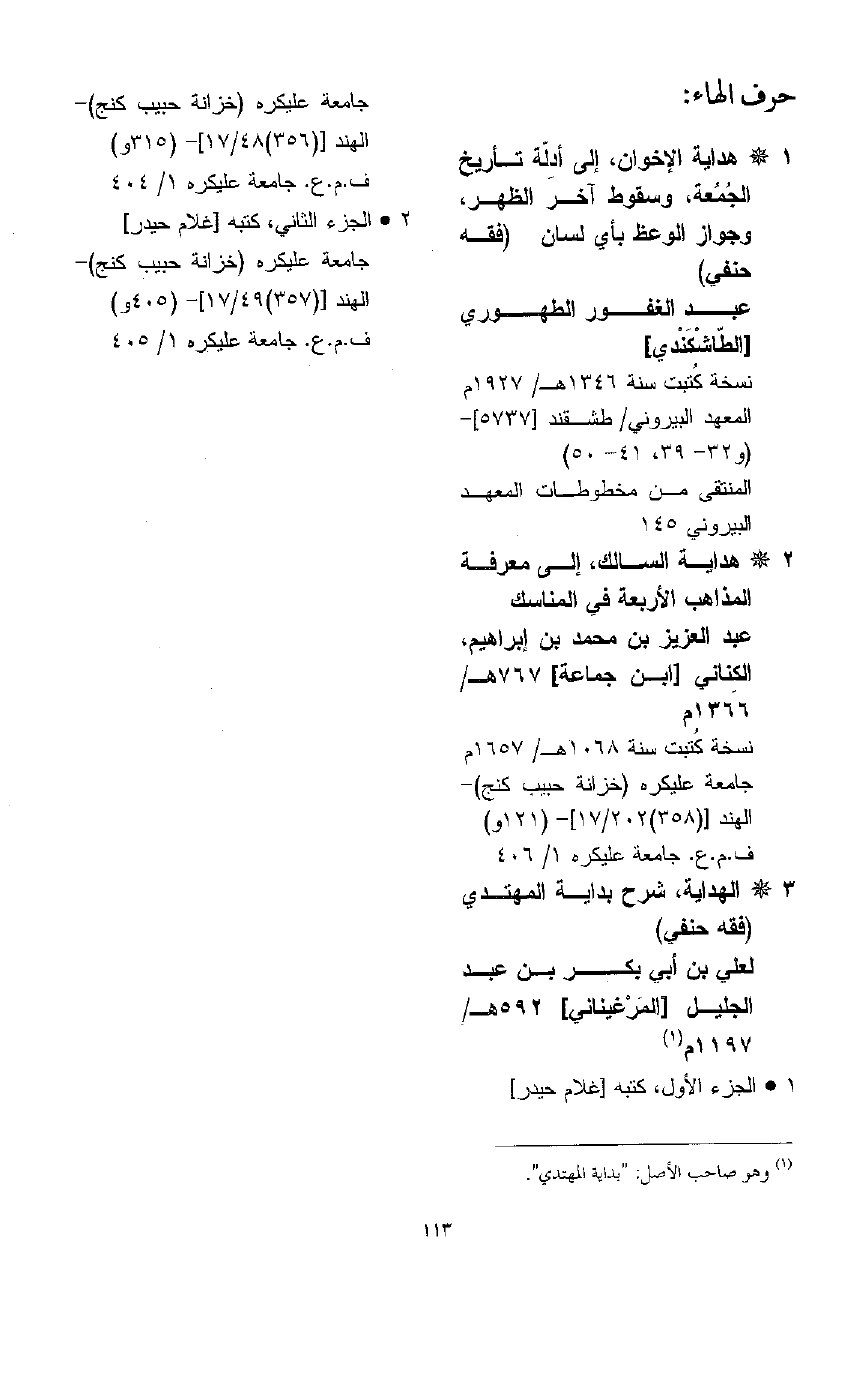 حرف الهاء:
١ ❋ هداية الإخوان، إلى أدلّة تـــأريخ
الجُمُعة، وسقوط آخـــر الظهـــر،
وجواز الوعظ بأي لسان (فقـــه
حنفي)
عبـــد الغفـــور الطهـــوري
[الطّاشْكَنْدي]
نسخة كُتبت سنة ١٣٤٦هـ/ ١٩٢٧م
المعهد البيروني/ طشـقند [٥٧٣٧]-
(و٣٢- ٣٩، ٤١- ٥٠)
المنتقى مـــن مخطوطـــات المعهـــد
البيروني ١٤٥
٢ ❋ هدايـــة الســـالك، إلـــى معرفـــة
المذاهب الأربعة في المناسك
عبد العزيز بن محمد بن إبراهيم،
الكِناني [ابـــن جماعة] ٧٦٧هـ/
١٣٦٦م
نسخة كُتبت سنة ١٠٦٨هـ/ ١٦٥٧م
جامعة عليكره (خزانة حبيب كنج)-
الهند [(٣٥٨)١٧/٢٠٢]- (١٢١و)
ف.م.ع. جامعة عليكره ١/ ٤٠٦
٣ ❋ الهداية، شرح بدايـــة المهتـــدي
(فقه حنفي)
لعلي بن أبي بكـــر بـــن عبـــد
الجليـــل [المَرْغيناني] ٥٩٢هـ/
١١٩٧م(١)
١ ● الجزء الأول، كتبه [غلام حيدر]
جامعة عليكره (خزانة حبيب كنج)-
الهند [(٣٥٦)١٧/٤٨]- (٣١٥و)
ف.م.ع. جامعة عليكره ١/ ٤٠٤
٢ ● الجزء الثاني، كتبه [غلام حيدر]
جامعة عليكره (خزانة حبيب كنج)-
الهند [(٣٥٧)١٧/٤٩]- (٤٠٥و)
ف.م.ع. جامعة عليكره ١/ ٤٠٥
(١) وهو صاحب الأصل: "بداية المهتدي".
١١٣